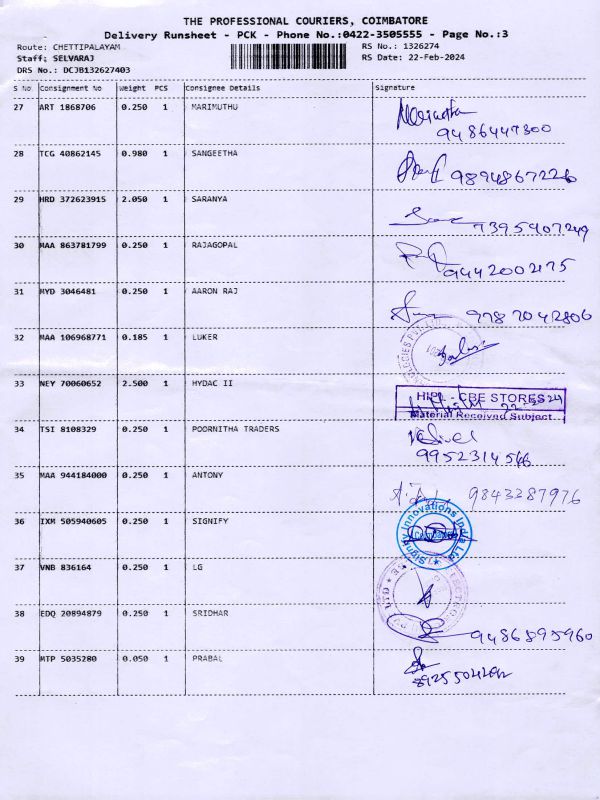 THE PROFESSIONAL COURIERS, COIMBATORE
Delivery Runsheet - PCK - Phone No.:0422-3505555 - Page No.:3
Route: CHETTIPALAYAM RS No.: 1326274
Staff: SELVARAJ RS Date: 22-Feb-2024
DRS No.: DCJB132627403
S No Consignment No Weight PCS Consignee Details Signature
27 ART 1868706 0.250 1 MARIMUTHU
9486447300
28 TCG 40862145 0.980 1 SANGEETHA 9894867226
29 HRD 372623915 2.050 1 SARANYA
7395907249
30 MAA 863781799 0.250 1 RAJAGOPAL
9442002175
31 MYD 3046481 0.250 1 AARON RAJ
9787042806
32 MAA 106968771 0.185 1 LUKER
33 NEY 70060652 2.500 1 HYDAC II
HIPL - CBE STORES
Material Received Subject
34 TSI 8108329 0.250 1 POORNITHA TRADERS
9952314566
35 MAA 944184000 0.250 1 ANTONY
9843287976
36 IXM 505940605 0.250 1 SIGNIFY
Signify Innovations India Ltd
37 VNB 836164 0.250 1 LG
38 EDQ 20894879 0.250 1 SRIDHAR
9486895960
39 MTP 5035280 0.050 1 PRABAL